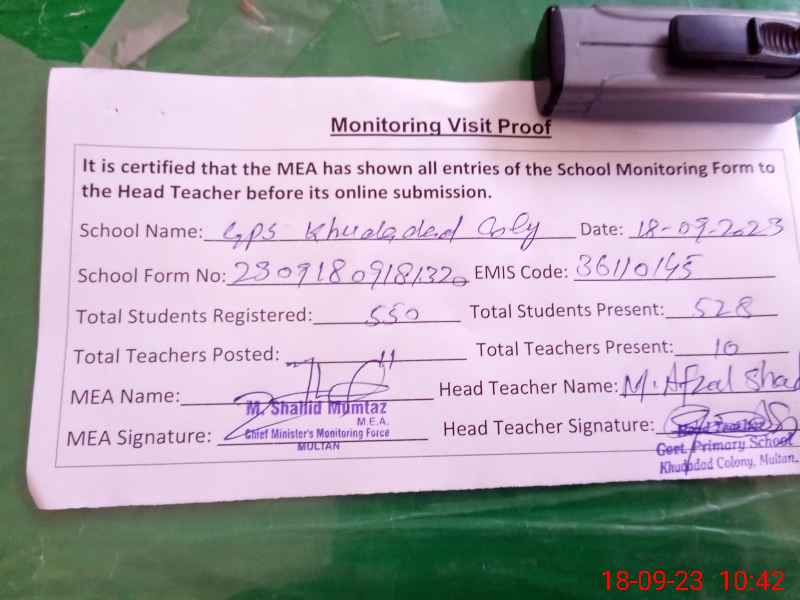 Monitoring Visit Proof
It is certified that the MEA has shown all entries of the School Monitoring Form to
the Head Teacher before its online submission.
School Name: GPS Khudadad Coly Date: 18-09-2023
School Form No: EMIS Code: 36110145
Total Students Registered: 550 Total Students Present: 528
Total Teachers Posted: 11 Total Teachers Present: 10
MEA Name: Head Teacher Name: M. Afzal
M. Shahid Mumtaz
M.E.A.
MEA Signature: Chief Minister's Monitoring Force Head Teacher Signature:
MULTAN
Head Teacher
Govt. Primary School
Khudadad Colony, Multan.
18-09-23 10:42